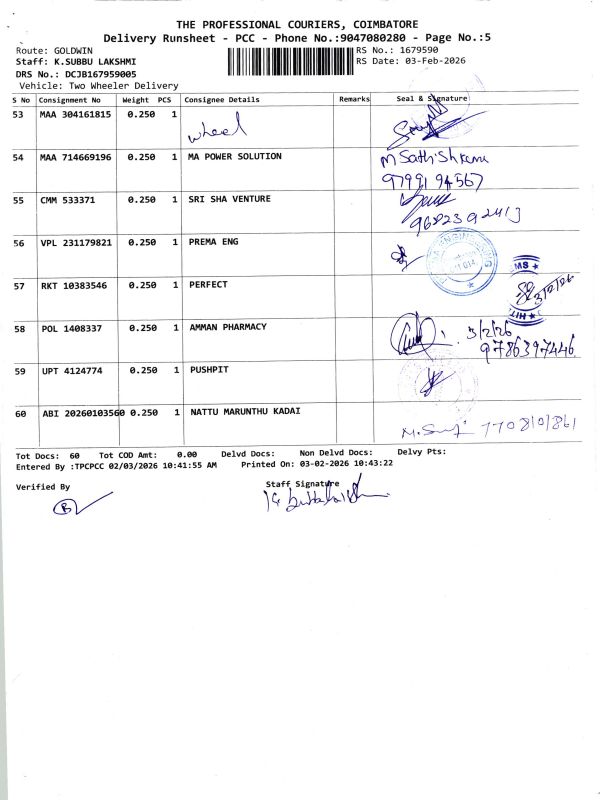 THE PROFESSIONAL COURIERS, COIMBATORE
Delivery Runsheet - PCC - Phone No.:9047080280 - Page No.:5
Route: GOLDWIN RS No.: 1679590
Staff: K.SUBBU LAKSHMI RS Date: 03-Feb-2026
DRS No.: DCJB167959005
Vehicle: Two Wheeler Delivery
S No Consignment No Weight PCS Consignee Details Remarks Seal & Signature
53 MAA 304161815 0.250 1 wheel
54 MAA 714669196 0.250 1 MA POWER SOLUTION M Sathishkumar
9799194567
55 CMM 533371 0.250 1 SRI SHA VENTURE
9682392413
56 VPL 231179821 0.250 1 PREMA ENG
57 RKT 10383546 0.250 1 PERFECT 3/2/26
58 POL 1408337 0.250 1 AMMAN PHARMACY 3/2/26
9786397446
59 UPT 4124774 0.250 1 PUSHPIT
60 ABI 20260103560 0.250 1 NATTU MARUNTHU KADAI 7708101861
Tot Docs: 60 Tot COD Amt: 0.00 Delvd Docs: Non Delvd Docs: Delvy Pts:
Entered By :TPCPCC 02/03/2026 10:41:55 AM Printed On: 03-02-2026 10:43:22
Verified By Staff Signature